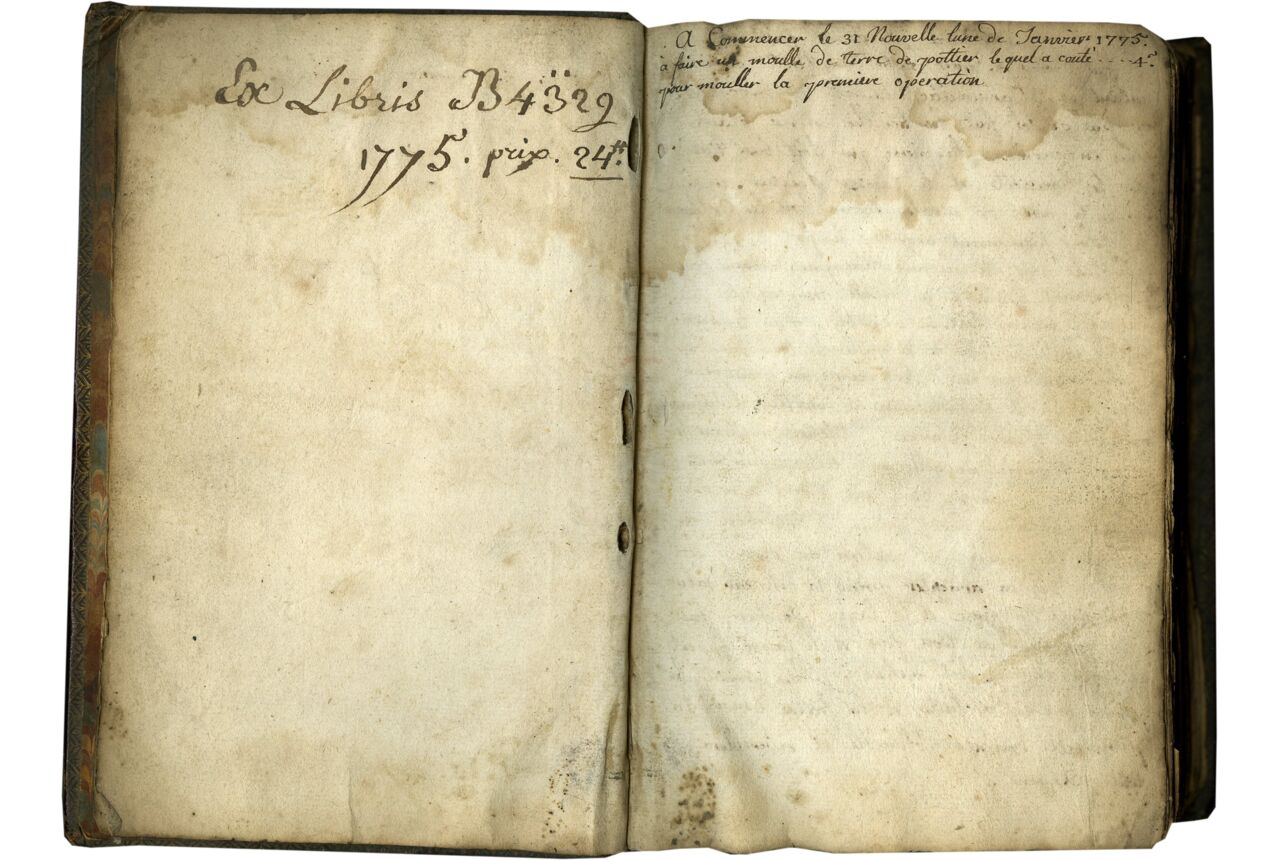 Ex Libris B4329
1775. prix. 24₶.
A Commencer le 31 Nouvelle lune de Janvier 1775.
à faire un moulle de terre de pottier lequel a couté .... 4ˢ.
pour mouller la premiere operation